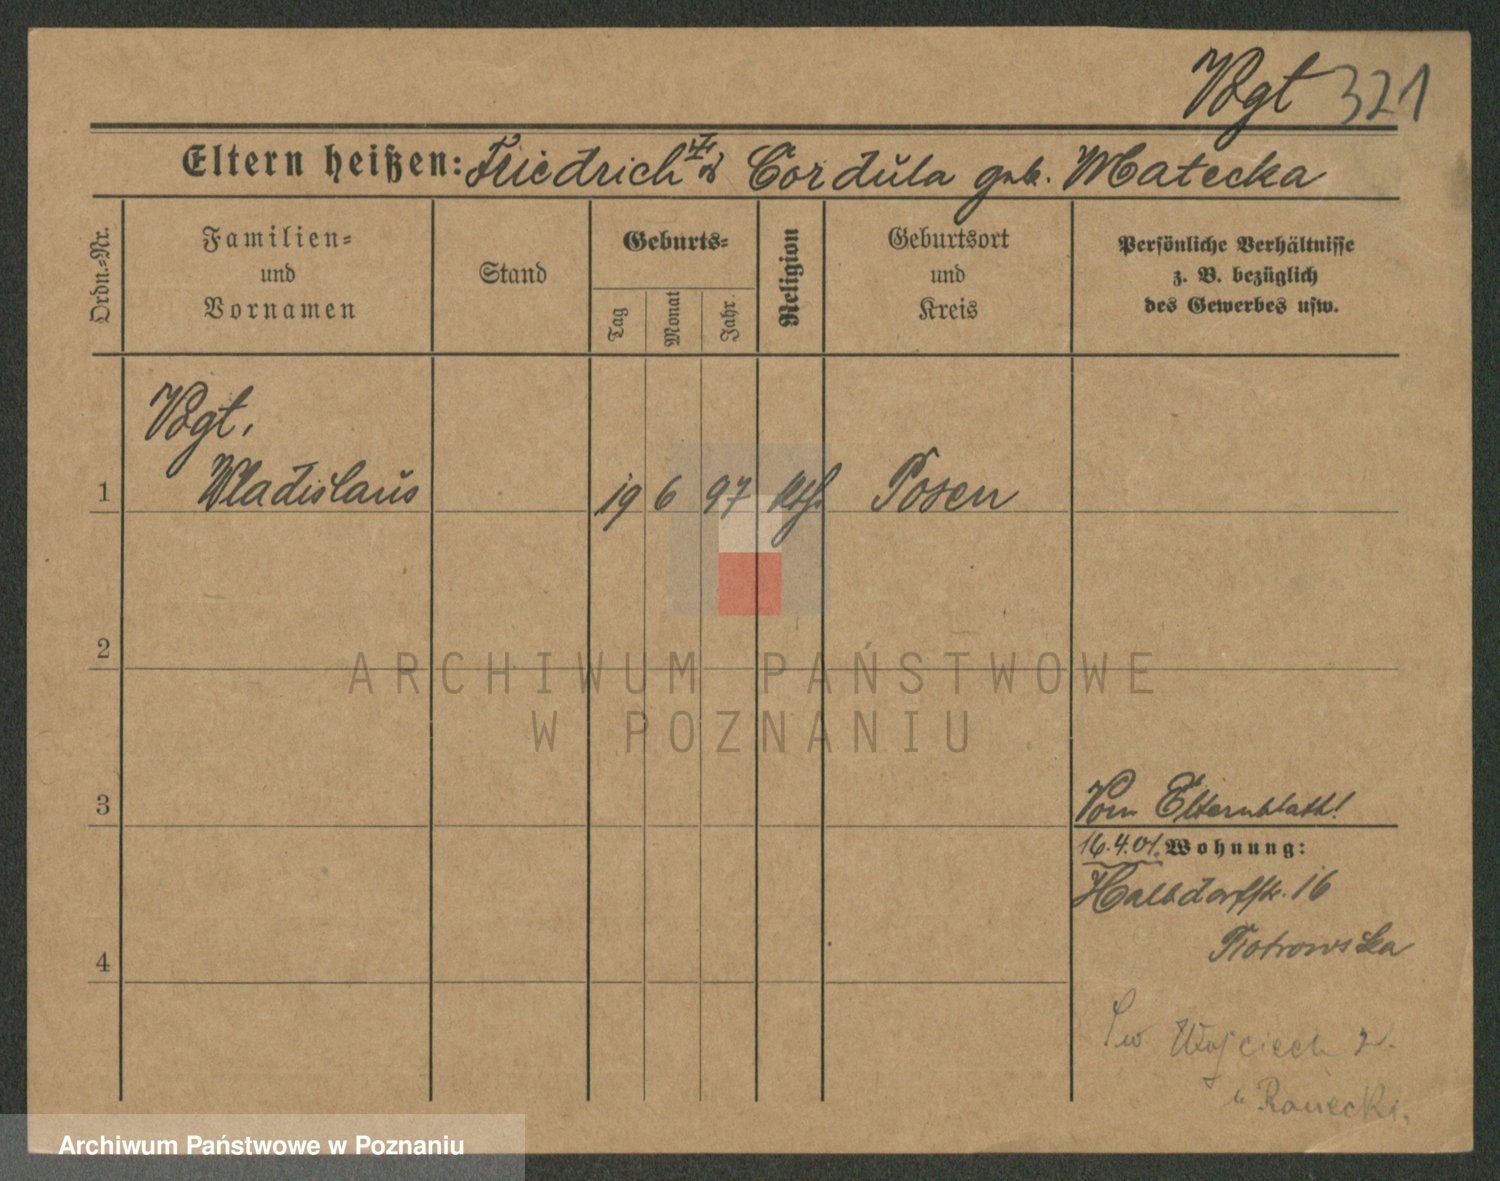 Vogt 321
Eltern heißen: Friedrich u. Cordula geb. Matecka
Ordn.-Nr.
Familien-
und
Vornamen
Stand
Geburts-
Tag
Monat
Jahr.
Religion
Geburtsort
und
Kreis
Persönliche Verhältnisse
z. B. bezüglich
des Gewerbes usw.
Vogt,
1 Wladislaus 19 6 97 kth Posen
2
ARCHIWUM PAŃSTWOWE
W POZNANIU
3
Vom Elternblatt!
16.4.01. Wohnung:
Halbdorfstr. 16
Piotrowska
4
Św Wojciech 2.
u Ranecki.
Archiwum Państwowe w Poznaniu